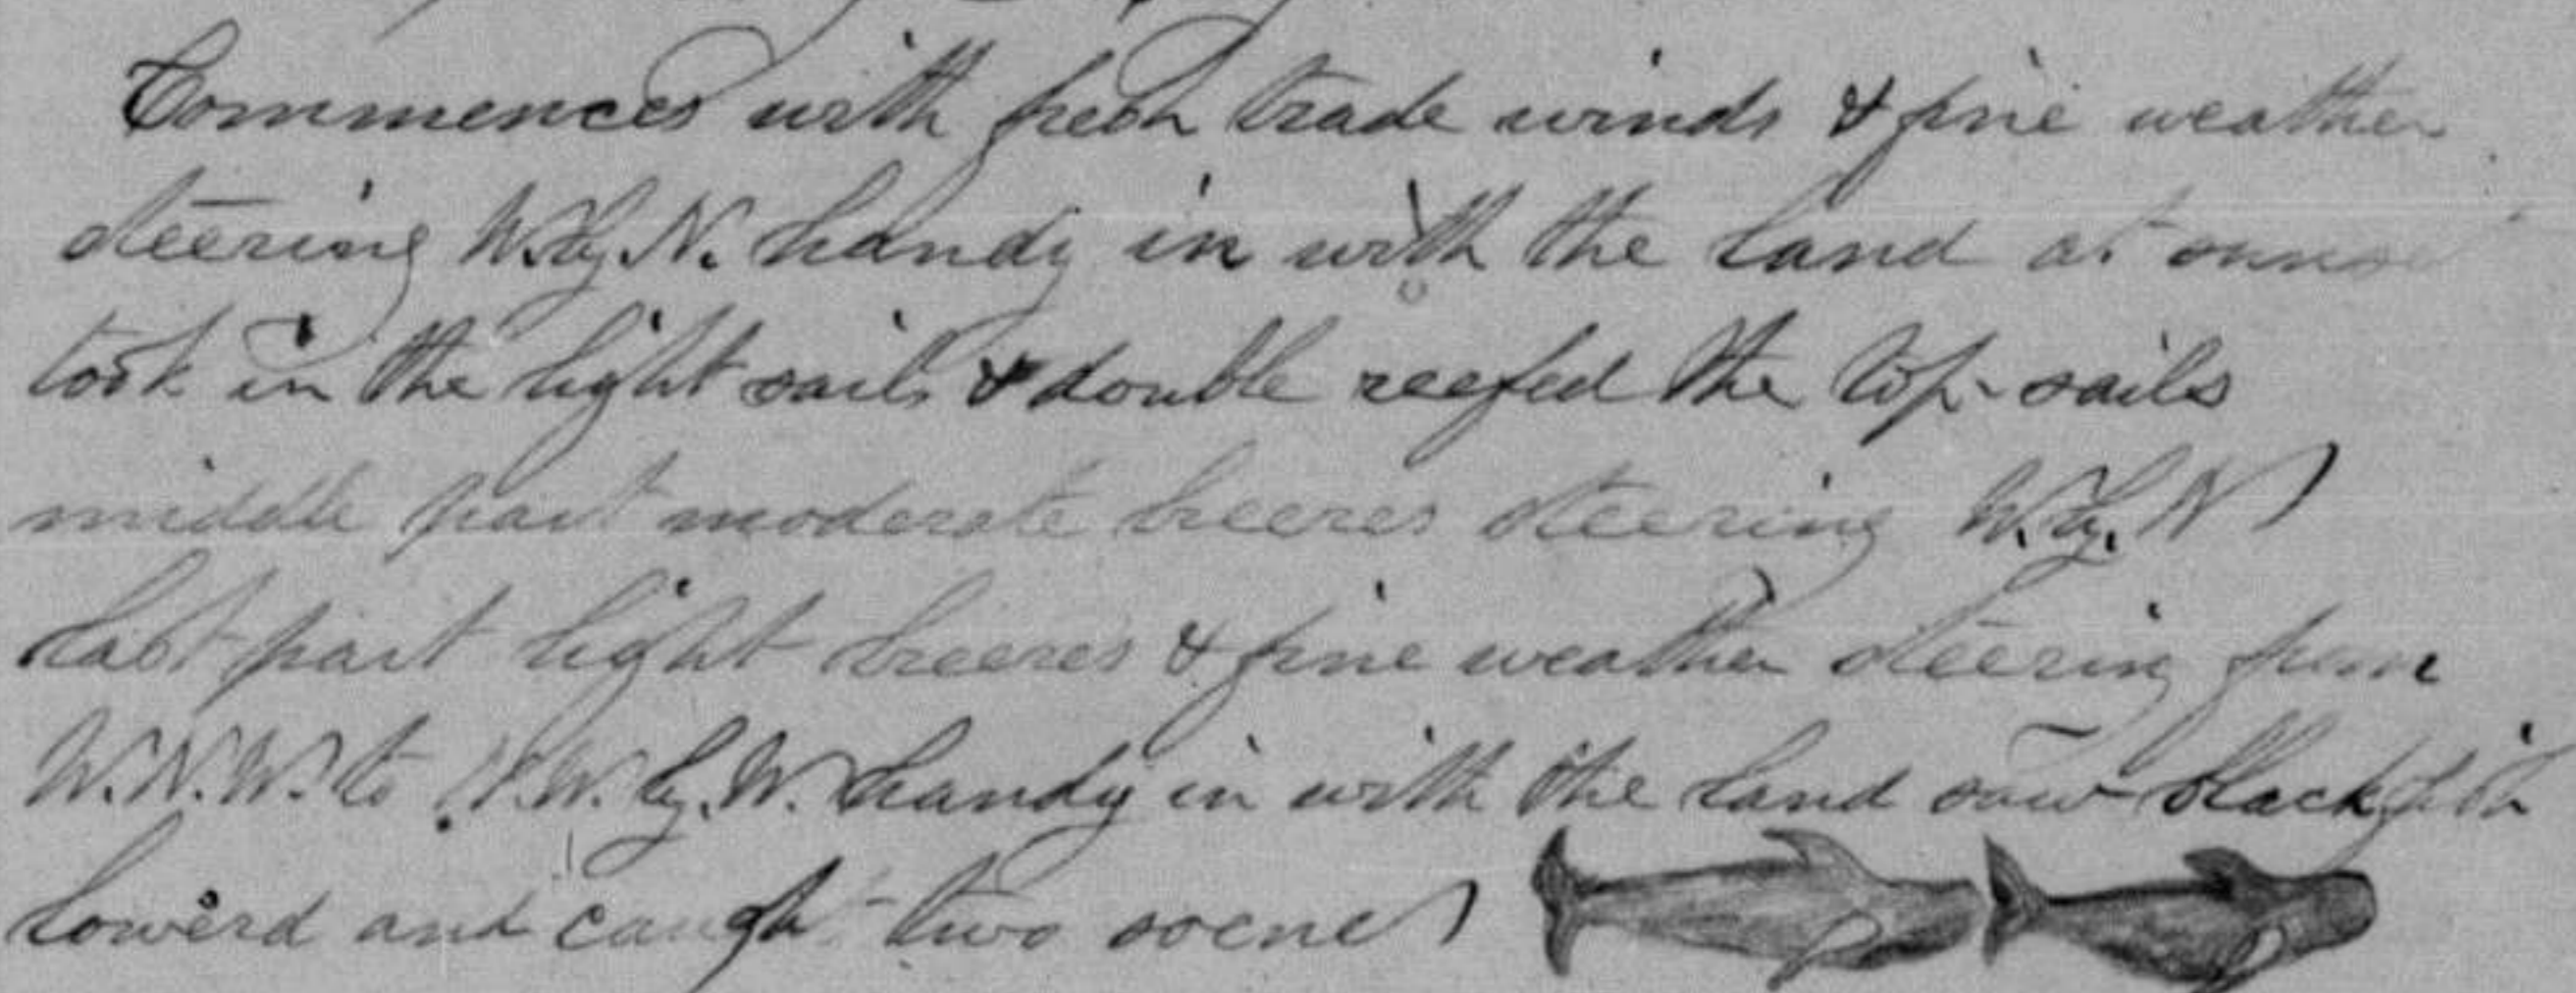 Commences with fresh trade winds & fine weather
steering W. by N. handy in with the land at sunset
took in the light sails & double reefed the top-sails
middle part moderate breezes steering W. by. N
Last part light breezes & fine weather steering from
W.N.W. to N.W. by. W. handy in with the land saw blackfish
lowerd and caught two